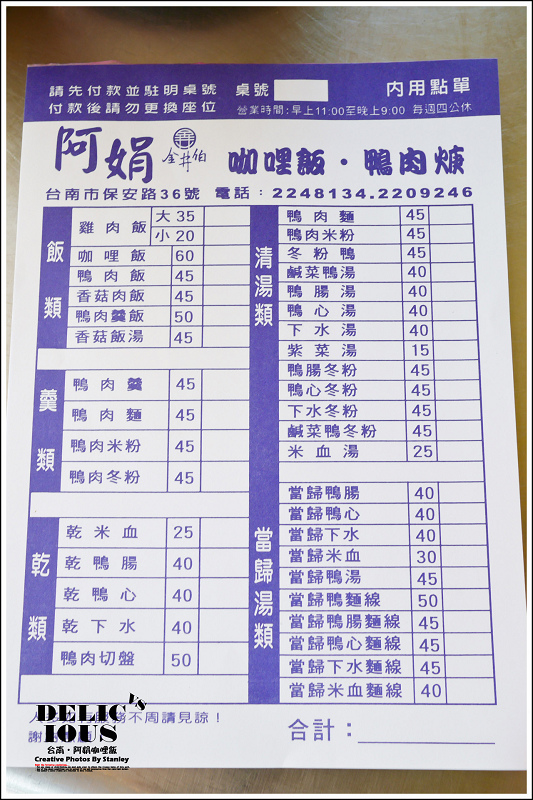 請先付款並駐明桌號 桌號 內用點單
付款後請勿更換座位 營業時間:早上11:00至晚上9:00 每週四公休
阿娟 金井伯 咖哩飯·鴨肉焿
台南市保安路36號 電話:2248134.2209246
飯類
雞肉飯 大 35
小 20
咖哩飯 60
鴨肉飯 45
香菇肉飯 45
鴨肉羹飯 50
香菇飯湯 45
羹類
鴨肉羹 45
鴨肉麵 45
鴨肉米粉 45
鴨肉冬粉 45
乾類
乾米血 25
乾鴨腸 40
乾鴨心 40
乾下水 40
鴨肉切盤 50
清湯類
鴨肉麵 45
鴨肉米粉 45
冬粉鴨 45
鹹菜鴨湯 40
鴨腸湯 40
鴨心湯 40
下水湯 40
紫菜湯 15
鴨腸冬粉 45
鴨心冬粉 45
下水冬粉 45
鹹菜鴨冬粉 45
米血湯 25
當歸湯類
當歸鴨腸 40
當歸鴨心 40
當歸下水 40
當歸米血 30
當歸鴨湯 45
當歸鴨麵線 50
當歸鴨腸麵線 45
當歸鴨心麵線 45
當歸下水麵線 45
當歸米血麵線 40
不周請見諒!
合計:
DELIC VS
IOUS
台南·阿娟咖哩飯
Creative Photos By Stanley